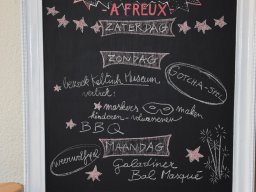 A FREUX
ZATERDAG
ZONDAG
bezoek Keltisch Museum
GOTCHA-SPEL
verlicht!
maskers maken
kinderen - volwassenen
BBQ
MAANDAG
Galadiner
Bal Masqué